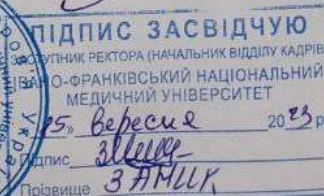 ПІДПИС ЗАСВІДЧУЮ
ЗАСТУПНИК РЕКТОРА (НАЧАЛЬНИК ВІДДІЛУ КАДРІВ)
ІВАНО-ФРАНКІВСЬКИЙ НАЦІОНАЛЬНИЙ
МЕДИЧНИЙ УНІВЕРСИТЕТ
25» вересня 2023 р
Підпис
Прізвище ЗАМИК